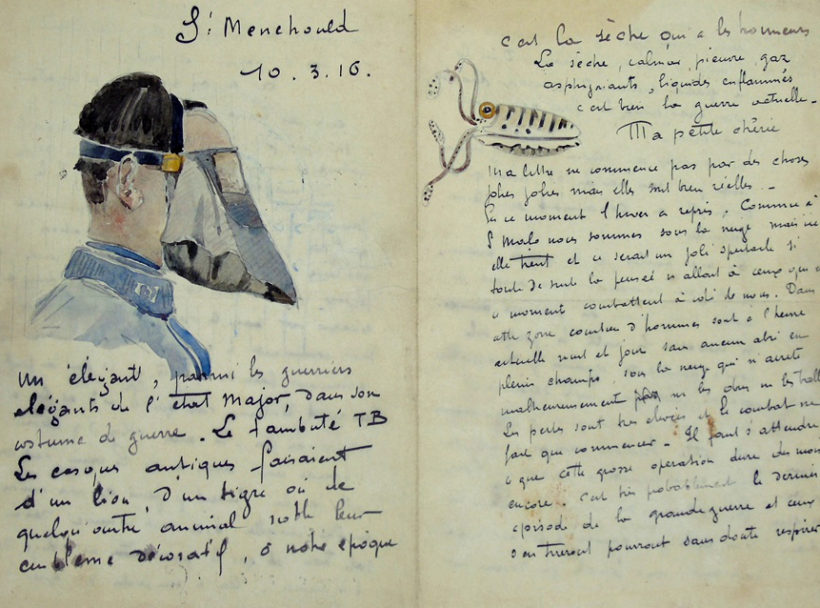 St Menehould
10.3.16.
Un élégant, parmi les guerriers
élégants de l'état major, dans son
costume de guerre. Le tambuté TB
Les casques antiques faisaient
d'un lion, d'un tigre ou de
quelqu'autre animal leur
emblème décoratif, à notre époque
c'est la sèche qui a les honneurs
La sèche, calmar, pieuvre, gaz
asphyxiants, liquides enflammés
c'est bien la guerre actuelle.
Ma petite chérie
Ma lettre ne commence pas par des choses
jolies jolies mais elles sont bien réelles.
En ce moment l'hiver a repris. Comme à
St Malo nous sommes sous la neige mais ici
elle tient et ce serait un joli spectacle si
tout de suite la pensée n'allait à ceux qui
moment combattent à côté de nous. Dans
cette zone d'hommes sont à l'heure
actuelle nuit et jour sans aucun abri en
pleins champs, sous la neige qui n'arrête
malheureusement ni les obus ni les
Les pertes sont très élevées et le combat ne
fait que commencer. Il faut s'attendre
à que cette grosse opération dure des mois
encore. C'est très probablement le dernier
épisode de la grande guerre et ceux
s'en tireront pourront sans doute respirer